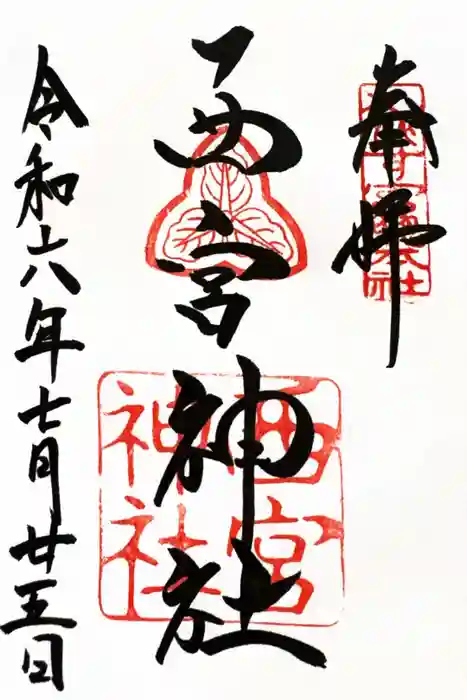 奉拝
西宮神社
西宮神社
令和六年七月廿五日